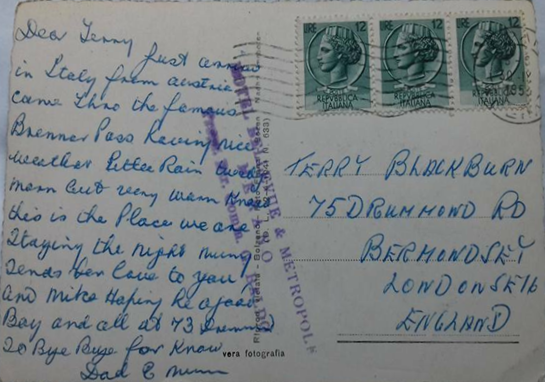 Dear Terry Just arrived
in Italy from Austria
came thro the famous
Brenner Pass Having nice
weather little Rain
morn but very warm
this is the Place we are
Staying the night Mum
Sends her love to you
And Mike Hoping He a good
Boy and all at 73
So Bye Bye for Know
Dad & Mum
vera fotografia
LIRE 12
LIRE 12
LIRE 12
REPUBBLICA
ITALIANA
REPUBBLICA
ITALIANA
REPUBBLICA
ITALIANA
& METROPOLE
TERRY BLACKBURN
75 DRUMMOND RD
BERMONDSEY
LONDON SE16
ENGLAND